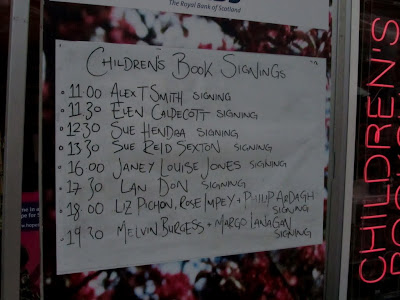 The Royal Bank of Scotland
CHILDREN'S BOOK SIGNINGS
11.00 ALEX T SMITH SIGNING
11.30 ELEN CALDECOTT SIGNING
12 30 SUE HENDRA SIGNING
13 30 SUE REID SEXTON SIGNING
16 00 JANEY LOUISE JONES SIGNING
17 30 LAN DON SIGNING
18 00 LIZ PICHON, ROSE IMPEY + PHILIP ARDAGH
SIGNING
19 30 MELVIN BURGESS + MARGO LANAGAN
SIGNING
CHILDREN'S